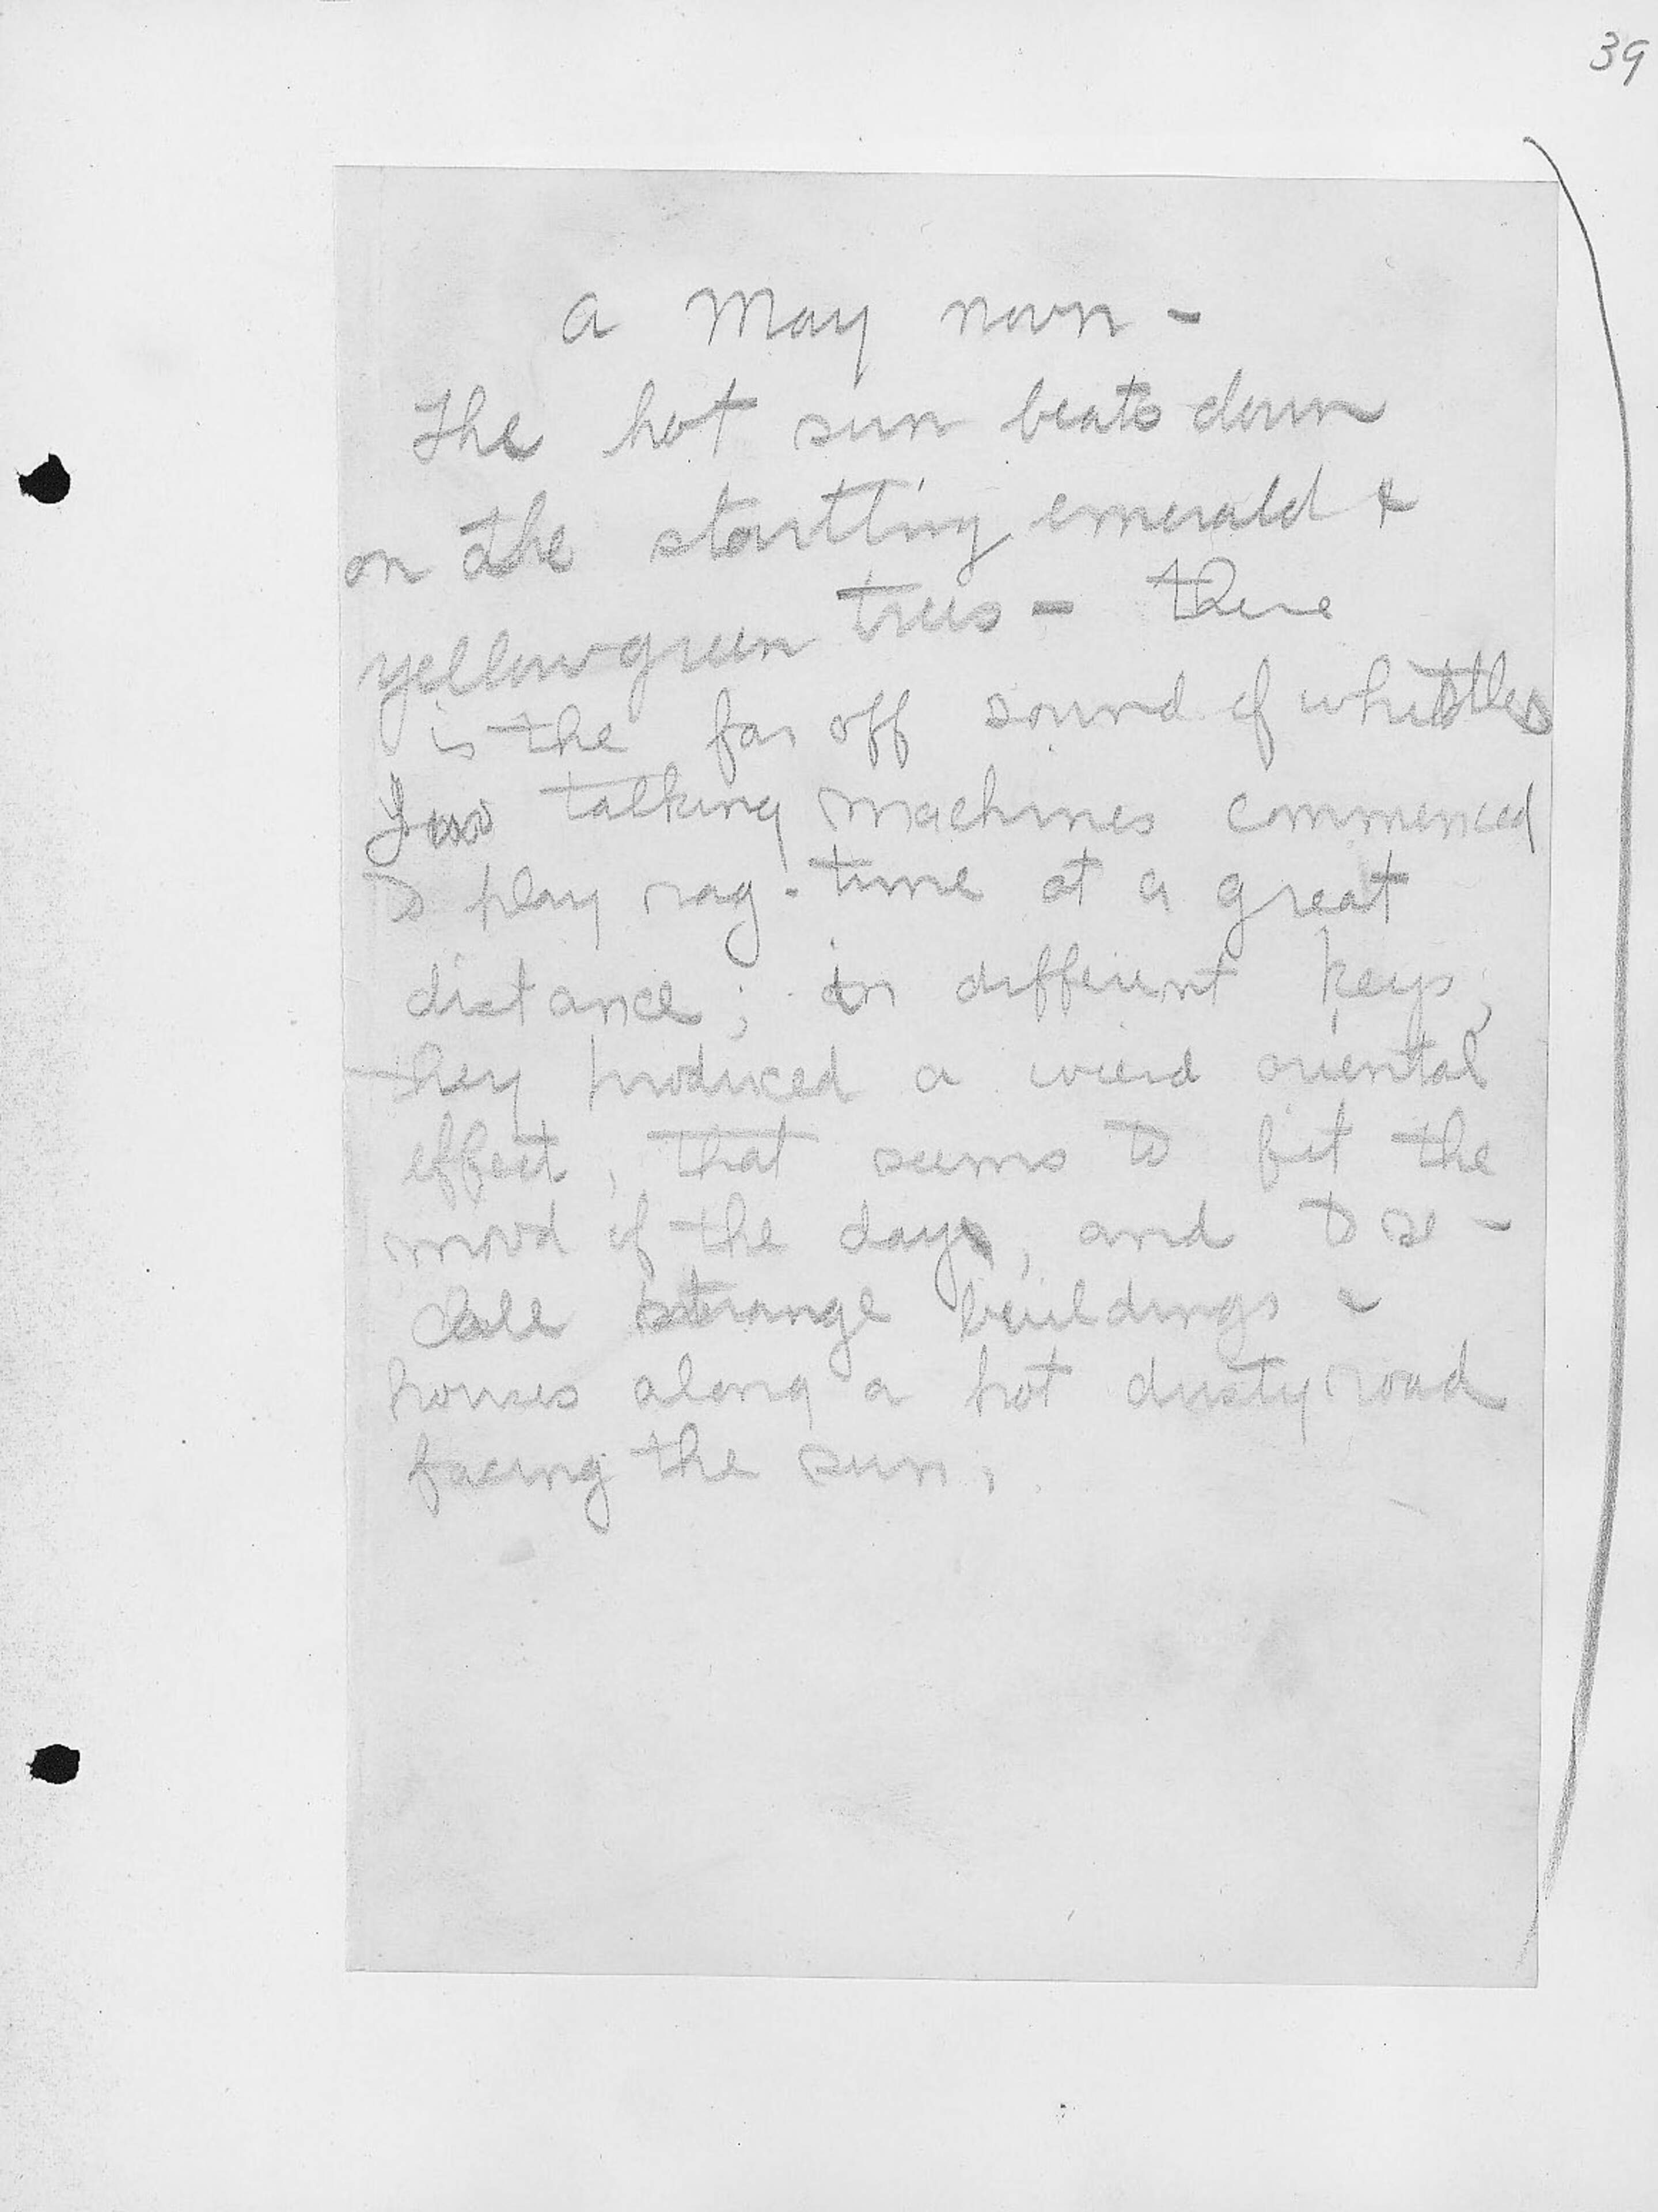 39
A May noon -
The hot sun beats down
on the startling emerald &
yellowgreen trees - there
is the far off sound of whistles
Two talking machines commenced
to play rag-time at a great
distance; in different keys,
they produced a wierd oriental
effect, that seems to fit the
mood of the day, and to re-
call strange buildings &
houses along a hot dusty road
facing the sun.